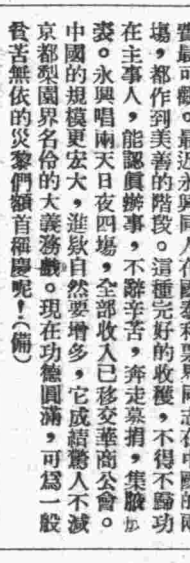 場，都作到美善的階段。這種完好的收穫，不得不歸功
在主事人，能認眞辦事，不辭辛苦，奔走募捐，集腋
裘。永興唱兩天日夜四場，全部收入已移交華商公會。
中國的規模更宏大，進欵自然要增多，它成績驚人不減
京都梨園界名伶的大義務戲。現在功德圓滿，可爲一般
貧苦無依的災黎們額首稱慶呢！（備）